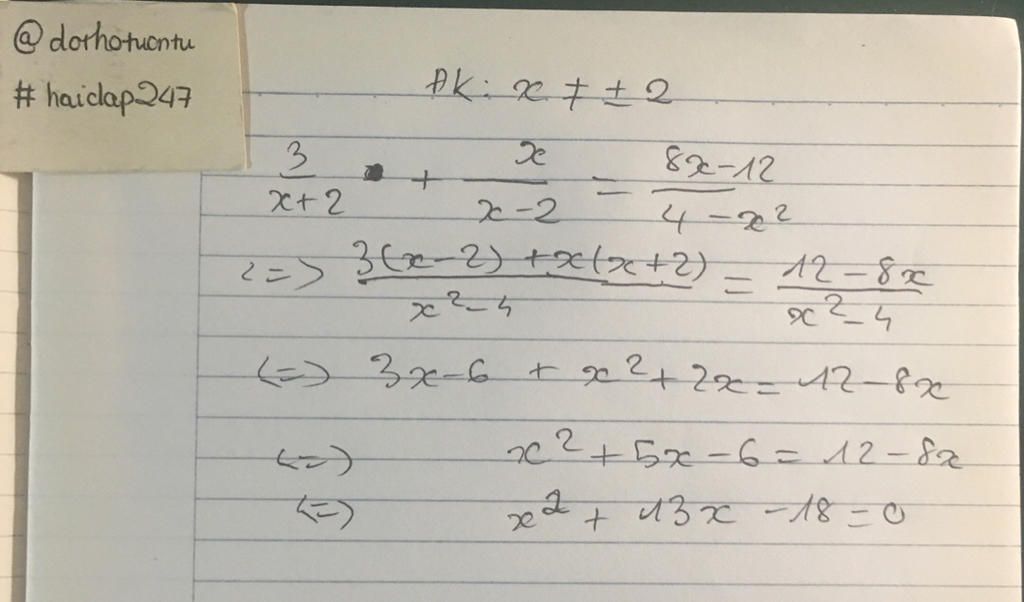 @dorhotuontu
#haiclap247
ĐK: x ≠ ± 2
3/(x+2) + x/(x-2) = (8x-12)/(4-x²)
<=> (3(x-2) + x(x+2))/(x²-4) = (12-8x)/(x²-4)
<=> 3x-6 + x²+2x = 12-8x
<=> x²+5x-6 = 12-8x
<=> x² + 13x -18 = 0